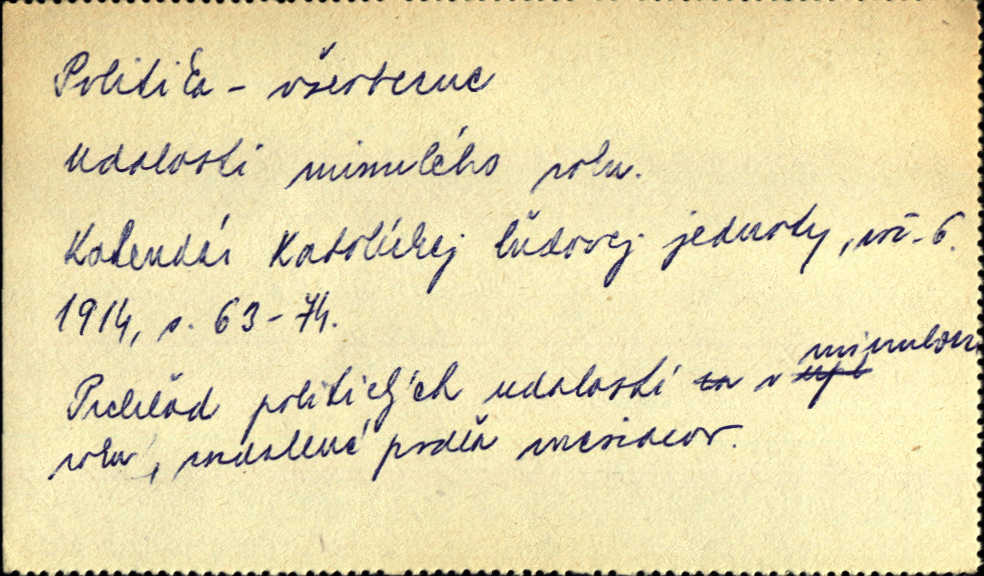 Politika - všeobecne
Udalosti minulého roku.
Kalendár Katolíckej ľudovej jednoty, roč. 6.
1914, s. 63-74.
Prehľad politických udalostí za v minulom
roku, podľa mesiacov.